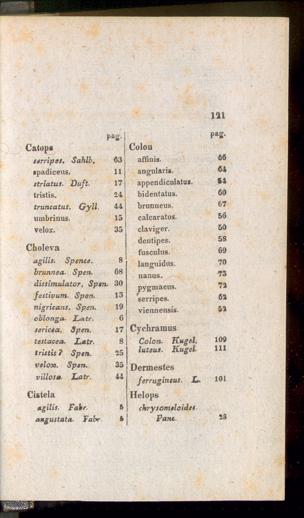 121
pag.
Catops
serripes. Sahlb. 63
spadiceus. 11
striatus. Duft. 17
tristis. 24
truncatus. Gyll. 44
umbrinus. 15
velox. 35
Choleva
agilis. Spence. 8
brunnea. Spen. 68
dissimulator. Spen. 30
festivum. Spen. 13
nigricans. Spen. 19
oblonga. Latr. 6
sericea. Spen. 17
testacea. Latr. 8
tristis? Spen. 25
velox. Spen. 35
villosa. Latr. 44
Cistela
agilis. Fabr. 8
angustata. Fabr 8
pag.
Colon
affinis. 66
angularis. 64
appendiculatus. 54
bidentatus. 60
brunneus. 67
calcaratus. 56
claviger. 50
dentipes. 58
fusculus. 69
languidus. 70
nanus. 73
pygmaeus. 72
serripes. 62
viennensis. 52
Cychramus
Colon. Kugel. 109
luteus. Kugel. 111
Dermestes
ferrugineus. L. 101
Helops
chrysomeloides
Panz. 28